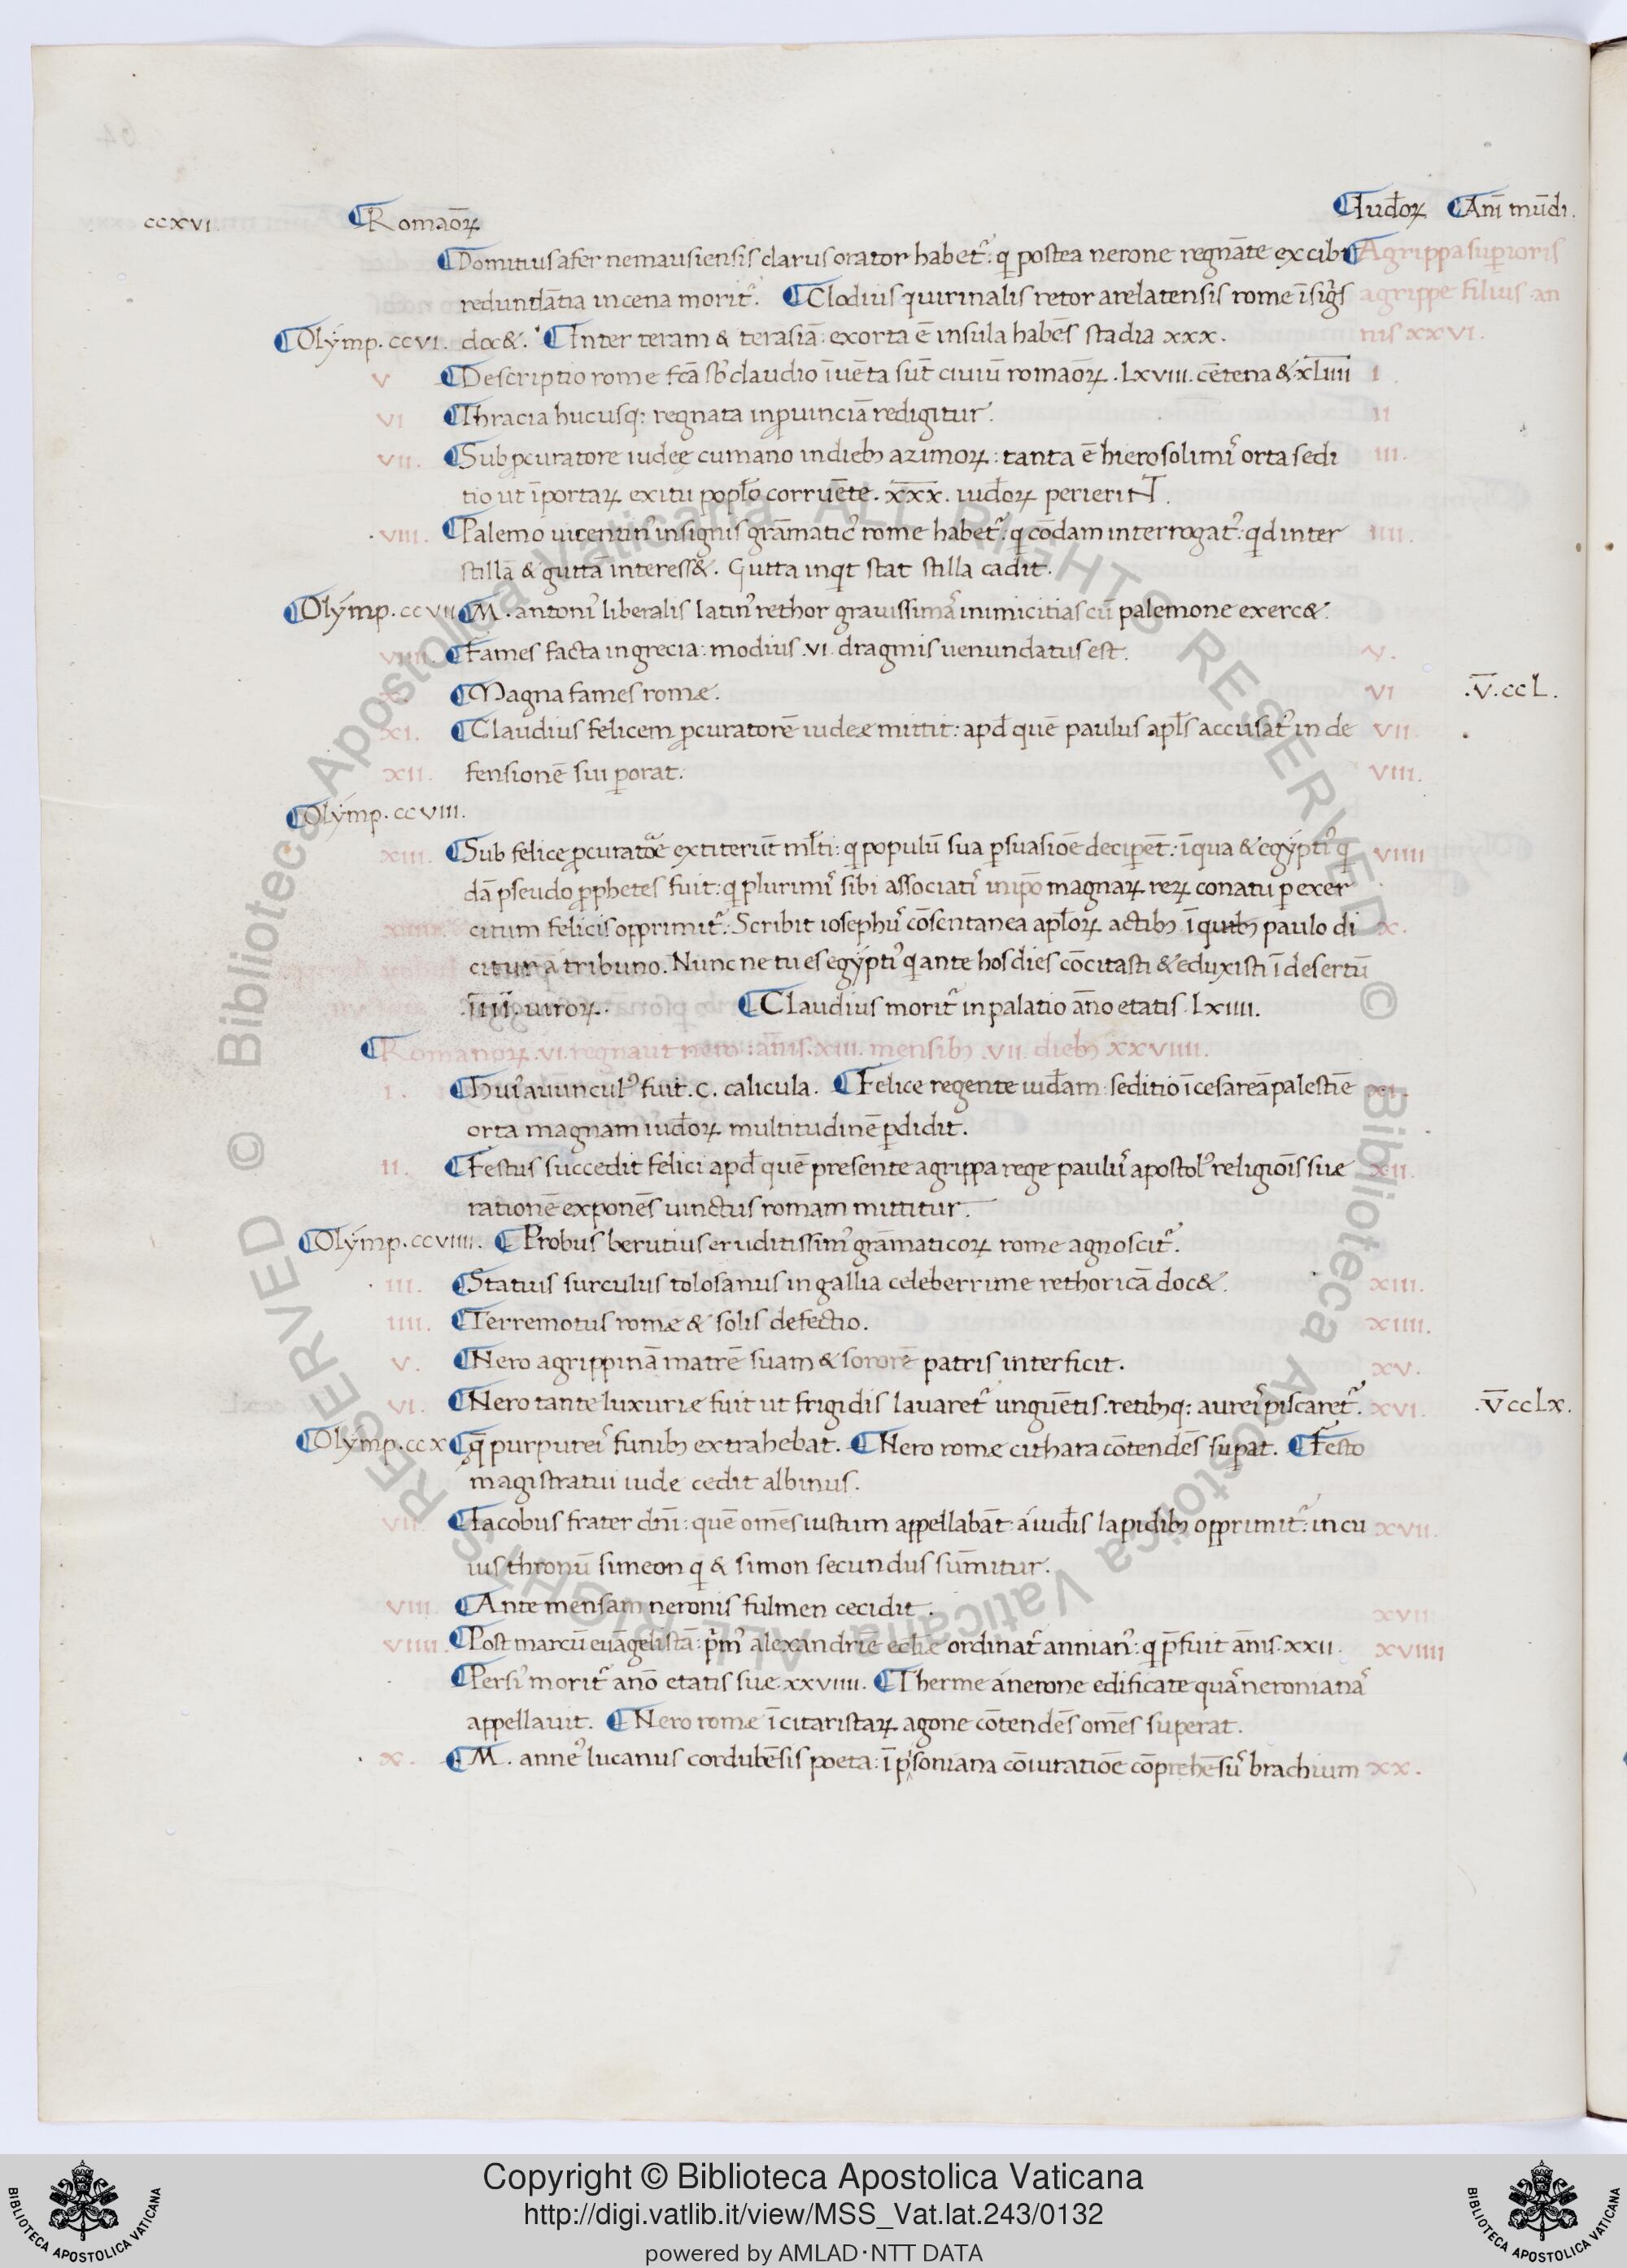 ccxvi. ¶Romaōꝝ ¶Iud̄oꝝ ¶Ani̅ mūdi.
¶Domitius afer nemausiensis clarus orator habet᷑: q̄ postea nerone regnāte ex cib ¶Agrippa sup̱ioris
redundātia in cena morit᷑. ¶Clodius quirinalis retor arelatensis rome īsig̅s agrippe filius an
¶Olýmp. ccvi. doc&. ¶Inter teram & terasiā: exorta ē insula habēs stadia xxx. nis xxvi.
v ¶Descriptio rome fcā sb̾ claudio īuēta sūt ciuiū romaōꝝ .Lxviii. cētena & x̅L̅i̅i̅i̅i̅ i
vi ¶Thracia hucusq: regnata in ꝓuinciā redigitur. ii
vii. ¶Sub ꝓcuratore iudeę cumano in dieb azimoꝝ: tanta ē hierosolimis orta sedi iii.
tio ut ī portaꝝ exitu popl̄o corruēte. x̅x̅x̅. iud̄oꝝ perieriNT.
.viii. ¶Palemo uicentin᾽ insignis grāmatic᾽ rome habet᷑: q̄ cōdam interrogat᾽: qd inter iiii.
stillā & guttā interess&. Gutta inqt stat stilla cadit.
¶Olýmp. ccvii ¶M. antoni᾽ liberalis latin᾽ rethor grauissimas inimicitias cū palemone exerc&.
viiii. ¶Fames facta in grecia: modius .vi. dragmis uenundatus est. v.
x. ¶Magna fames romæ. vi .v̅.ccL.
xi. ¶Claudius felicem ꝓcuratorē iudeæ mittit: apd̄ quē paulus apl̄s accusat᷑ in de vii.
xii. fensionē sui ꝑorat. viii.
¶Olýmp. ccviii.
xiii. ¶Sub felice ꝓcuratōe extiterūt ml̄ti: q̄ populū sua ꝑsuasiōe deciꝑēt: ī qua & egýpti᾽ q̄ viiii
dā pseudo ꝓphetes fuit: q̄ plurimis sibi associatis in ip̄o magnaꝝ reꝝ conatu ꝑ exer
xiiii. citum felicis opprimit᷑. Scribit iosephus cōsentanea apl̄oꝝ actib ī quib paulo di x.
citur a tribuno. Nunc ne tu es egýpti᾽ q̄ ante hos dies cōcitasti & eduxisti ī desertū
.i̅i̅i̅i̅. uiroꝝ. ¶Claudius morit᷑ in palatio āno etatis .Lxiiii.
¶Romanoꝝ .vi. regnauit nero: ānis .xiii. mensib .vii. dieb xxviiii.
i. ¶Huius auuncul᾽ fuit .c. calicula. ¶Felice regente iud̄am: seditio ī cesareā palestīe xi.
orta magnam iud̄oꝝ multitudinē ꝑdidit.
ii. ¶Festus succedit felici apd̄ quē presente agrippa rege paulus apostol᾽ religiōis suæ xii.
rationē exponēs uinctus romam mittitur.
¶Olýmp. ccviiii. ¶Probus berutius eruditissim᾽ grāmaticoꝝ rome agnoscit᷑.
.iii. ¶Statius surculus tolosanus in gallia celeberrime rethoricā doc&. xiii.
iiii. ¶Terremotus romæ & solis defectio. xiiii.
v. ¶Nero agrippinā matrē suam & sororē patris interficit. xv.
vi. ¶Nero tante luxuriæ fuit ut frigidis lauaret᷑ unguētis. retibq: aureis piscaret᷑. xvi. .v̅ ccLx.
¶Olýmp. ccx ¶q̄ purpureis funib extrahebat. ¶Nero romæ cithara cōtendēs suꝑat. ¶Festo
magistratui iude cedit albinus.
vii. ¶Iacobus frater dn̄i: quē omēs iustum appellabāt: a iud̄is lapidib opprimit᷑: in cu xvii.
ius thronū simeon q̄ & simon secundus sūmitur.
viii. ¶Ante mensam neronis fulmen cecidit. xviii
viiii. ¶Post marcū euāgelistā: pm᾽ alexandrie eccl̄iæ ordinat᷑ annian᾽: q̄ p̄fuit ānis .xxii. xviiii
¶Persi᾽ morit᷑ anō etatis sue .xxviiii. ¶Therme a nerone edificate quas neronianas
appellauit. ¶Nero romæ ī citaristaꝝ agone cōtendēs omēs superat.
.x. ¶M. anne᾽ lucanus cordubēsis poeta: ī pisoniana cōiuratiōe cōprehēsus brachium xx.
Copyright © Biblioteca Apostolica Vaticana
http://digi.vatlib.it/view/MSS_Vat.lat.243/0132
powered by AMLAD·NTT DATA